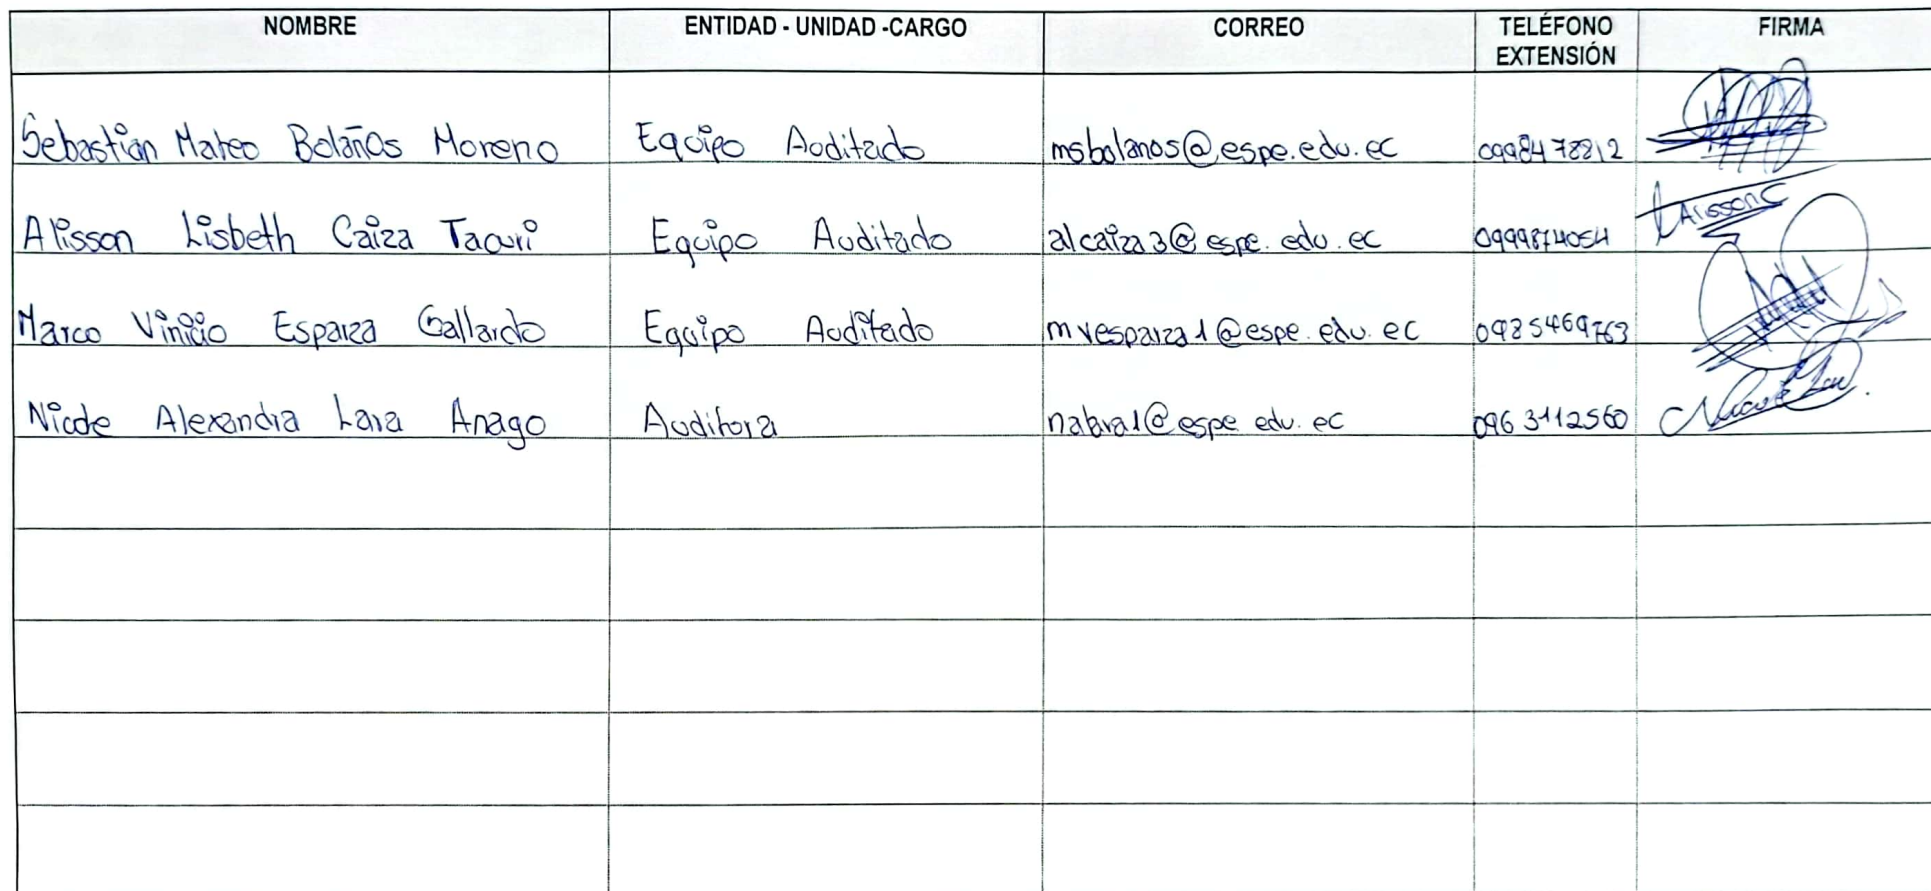 NOMBRE ENTIDAD - UNIDAD -CARGO CORREO TELÉFONO EXTENSIÓN FIRMA
Sebastián Mateo Bolaños Moreno Equipo Auditado msbolanos@espe.edu.ec 0998478812
Alisson Lisbeth Caiza Tacuri Equipo Auditado alcaiza3@espe.edu.ec 0999874054 AlissonC
Marco Vinicio Esparza Gallardo Equipo Auditado mvesparza1@espe.edu.ec 0985469763
Nicole Alexandra Lara Anago Auditora nalara1@espe.edu.ec 0963112560